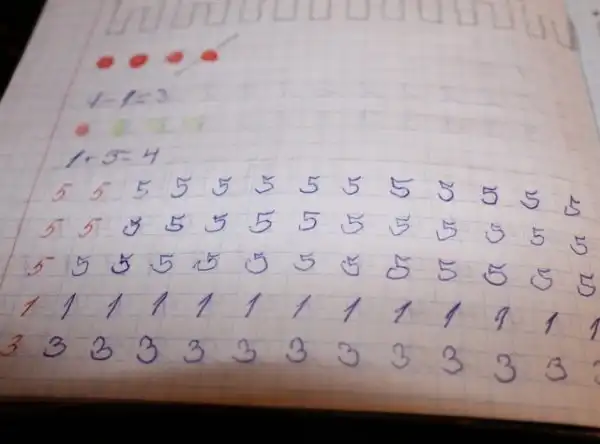 4-1=3
1+3=4
5 5 5 5 5 5 5 5 5 5 5 5 5
5 5 5 5 5 5 5 5 5 5 5 5 5
5 5 5 5 5 5 5 5 5 5 5 5 5
1 1 1 1 1 1 1 1 1 1 1 1 1
3 3 3 3 3 3 3 3 3 3 3 3